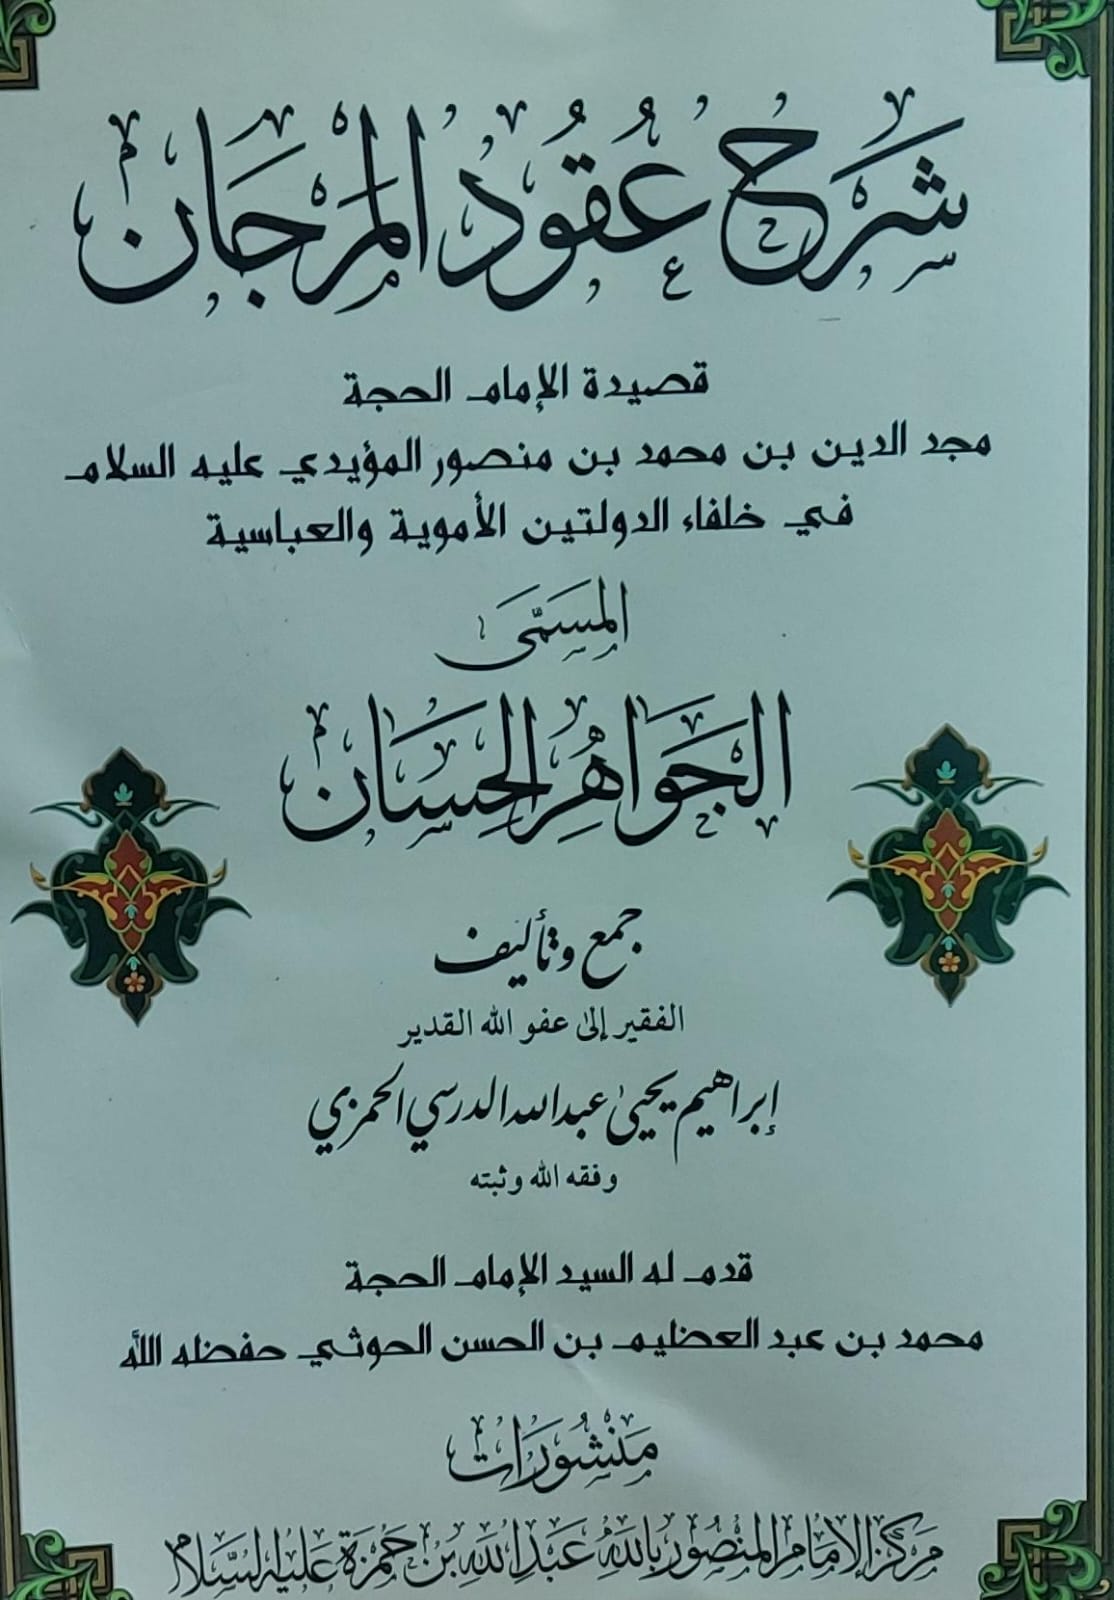 شَرْحُ عُقُودِ المَرْجَان
قصيدة الإمام الحجة
مجد الدين بن محمد بن منصور المؤيدي عليه السلام
في خلفاء الدولتين الأموية والعباسية
المسمّى
الجَوَاهِرِ الحِسَان
جمع وتأليف
الفقير إلى عفو الله القدير
إبراهيم يحيى عبدالله الدرسي الحمزي
وفقه الله وثبته
قدم له السيد الإمام الحجة
محمد بن عبد العظيم بن الحسن الحوثي حفظه الله
مَنْشُورَات
مَرْكَزِ الإمَامِ المَنْصُورِ بِاللهِ عَبْدِ اللهِ بْنِ حَمْزَةَ عَلَيْهِ السَّلَام